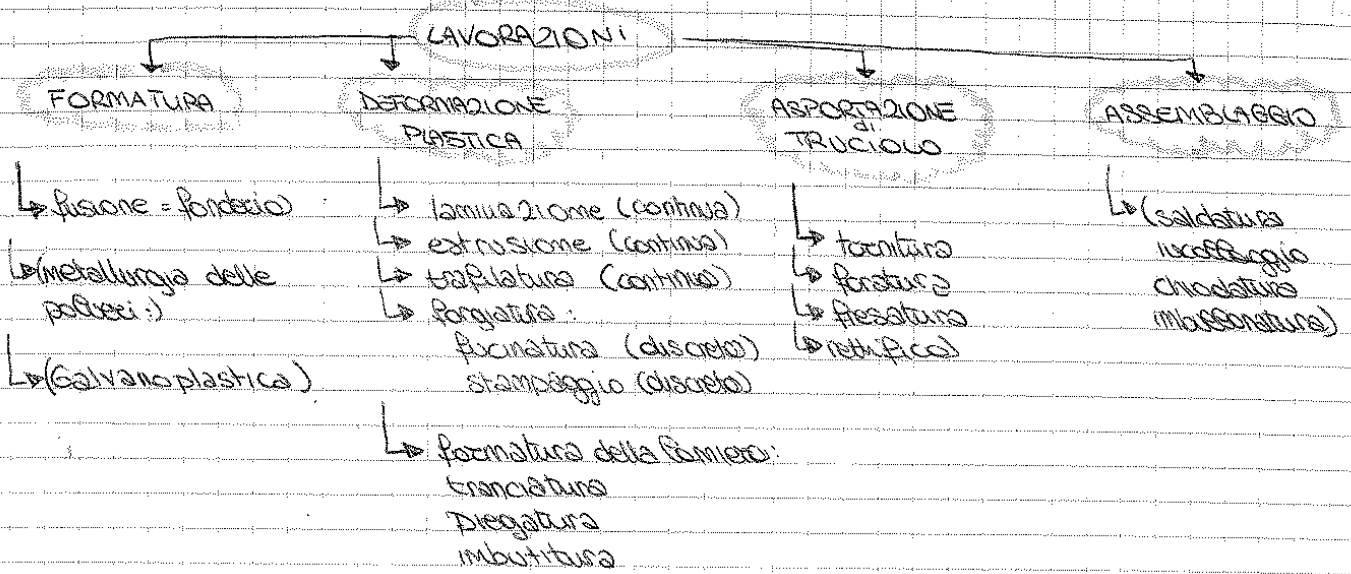 LAVORAZIONI
FORMATURA
↳ fusione = fonderia
↳ (metallurgia delle
polveri :)
↳ (Galvanoplastica)
DEFORMAZIONE
PLASTICA
↳ laminazione (continua)
↳ estrusione (continua)
↳ trafilatura (continua)
↳ forgiatura :
fucinatura (discreta)
stampaggio (discreto)
↳ formatura della lamiera:
tranciatura
piegatura
imbutitura
ASPORTAZIONE
di
TRUCIOLO
↳ tornitura
↳ foratura
↳ fresatura
↳ rettifica
ASSEMBLAGGIO
↳ (saldatura
incollaggio
chiodatura
imbullonatura)